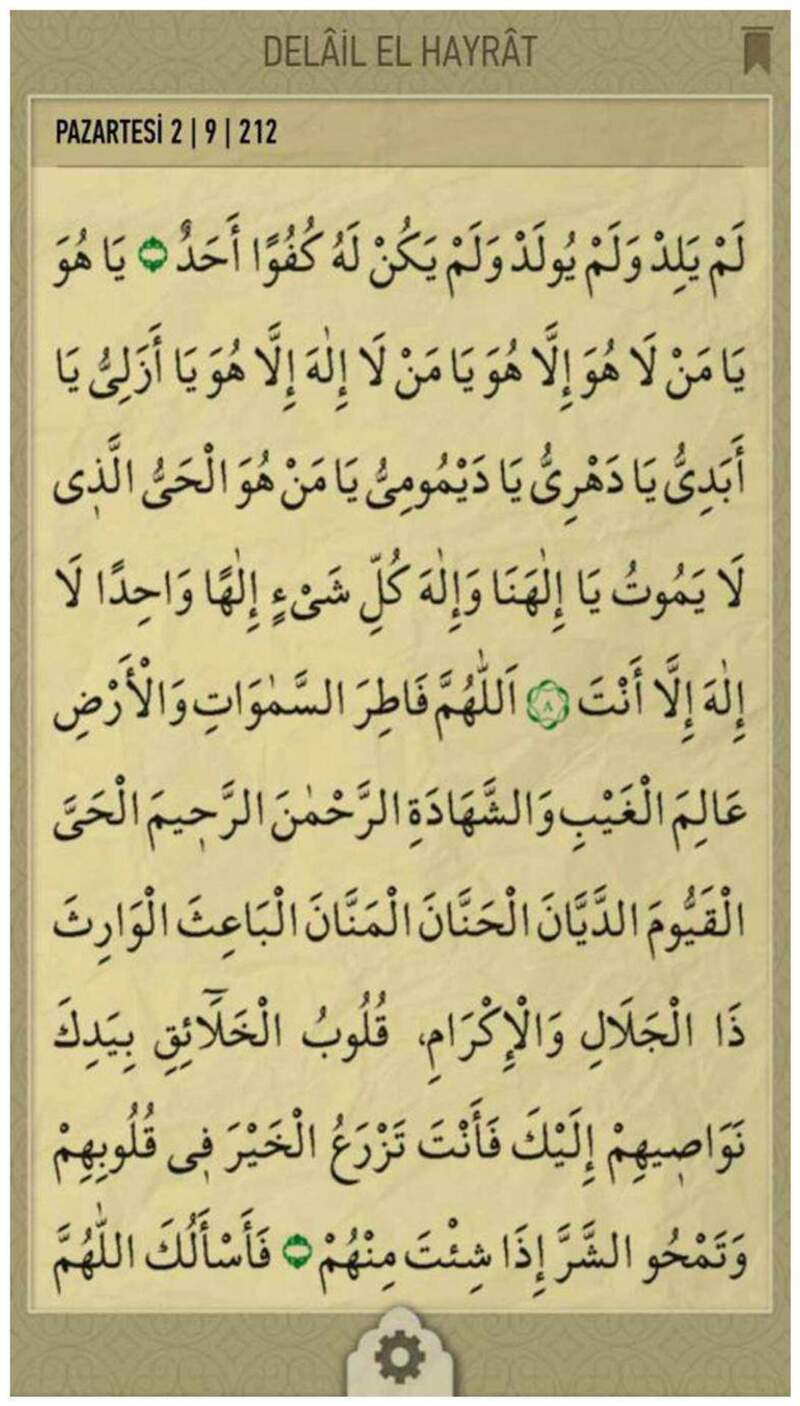 DELÂİL EL HAYRÂT
PAZARTESİ 2 | 9 | 212
لَمْ يَلِدْ وَلَمْ يُولَدْ وَلَمْ يَكُنْ لَهُ كُفُوًا أَحَدٌ يَا هُوَ
يَا مَنْ لَا هُوَ إِلَّا هُوَ يَا مَنْ لَا إِلٰهَ إِلَّا هُوَ يَا أَزَلِىُّ يَا
أَبَدِىُّ يَا دَهْرِىُّ يَا دَيْمُومِىُّ يَا مَنْ هُوَ الْحَىُّ الَّذِى
لَا يَمُوتُ يَا إِلٰهَنَا وَإِلٰهَ كُلِّ شَىْءٍ إِلٰهًا وَاحِدًا لَا
إِلٰهَ إِلَّا أَنْتَ ٨ اَللّٰهُمَّ فَاطِرَ السَّمٰوَاتِ وَالْأَرْضِ
عَالِمَ الْغَيْبِ وَالشَّهَادَةِ الرَّحْمٰنَ الرَّحِيمَ الْحَىَّ
الْقَيُّومَ الدَّيَّانَ الْحَنَّانَ الْمَنَّانَ الْبَاعِثَ الْوَارِثَ
ذَا الْجَلَالِ وَالْإِكْرَامِ، قُلُوبُ الْخَلَٓائِقِ بِيَدِكَ
نَوَاصِيهِمْ إِلَيْكَ فَأَنْتَ تَزْرَعُ الْخَيْرَ فِى قُلُوبِهِمْ
وَتَمْحُو الشَّرَّ إِذَا شِئْتَ مِنْهُمْ فَأَسْأَلُكَ اللّٰهُمَّ